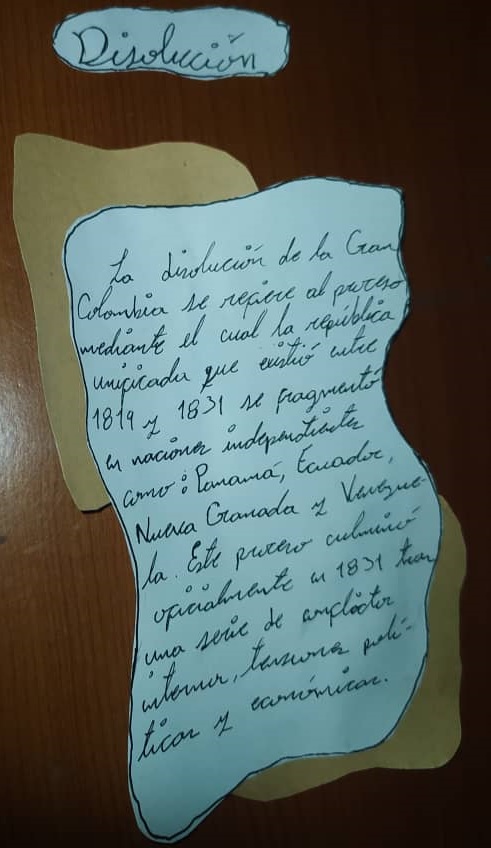 Disolución
La disolución de la Gran
Colombia se refiere al proceso
mediante el cual la república
unificada que existió entre
1819 y 1831 se fragmentó
en naciones independientes
como: Panamá, Ecuador,
Nueva Granada y Venezue-
la. Este proceso culminó
oficialmente en 1831 tras
una serie de conflictos
internos, tensiones polí-
ticas y económicas.